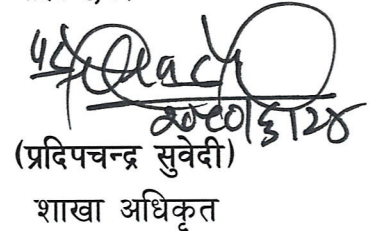 २०८०।६।२४
(प्रदिपचन्द्र सुवेदी)
शाखा अधिकृत